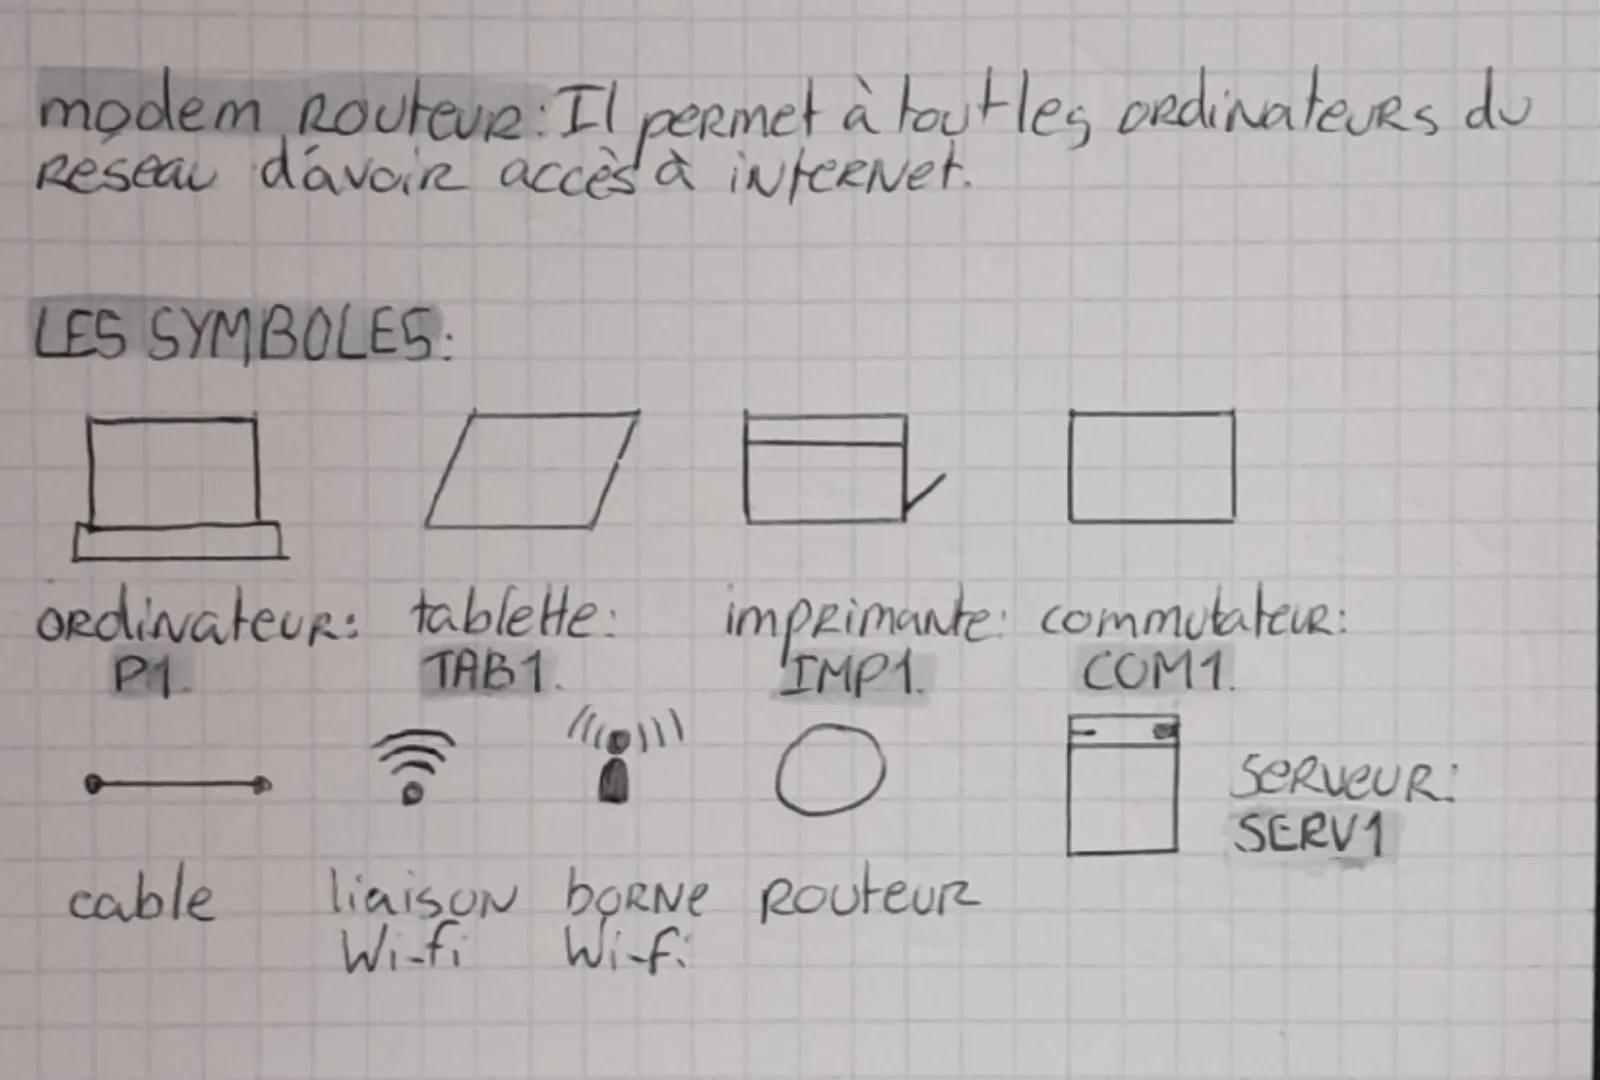 modem Routeur: Il permet à tout les ordinateurs du
Reseau d'avoir accès à internet.
LES SYMBOLES:
ordinateur: tablette: imprimante: commutateur:
P1. TAB1. IMP1. COM1.
serveur:
SERV1
cable liaison borne Routeur
Wi-fi Wi-fi